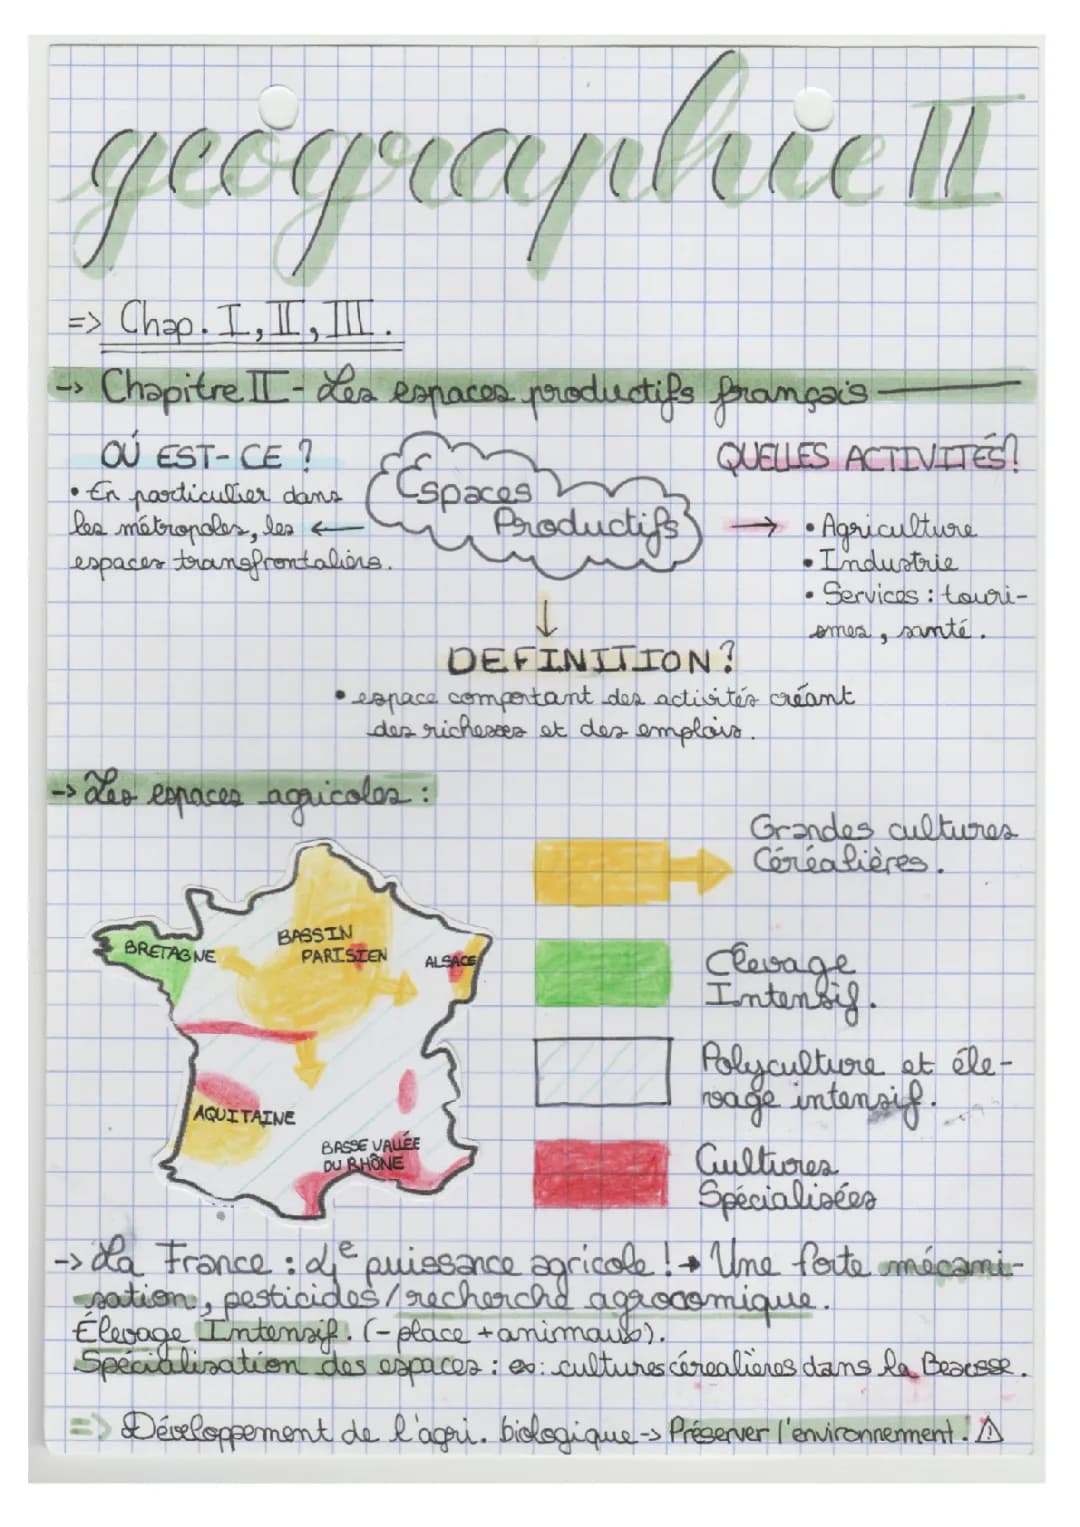 géographie II
=> Chap. I, II, III.
-> Chapitre II - Les espaces productifs français
OÚ EST-CE ?
• En particulier dans
les métropoles, les
espaces transfrontaliers.
Espaces
Productifs
QUELLES ACTIVITÉS?
• Agriculture
• Industrie
• Services : touri-
smes, santé.
DEFINITION?
• espace comportant des activités créant
des richesses et des emplois.
-> Les espaces agricoles :
BRETAGNE
BASSIN
PARISIEN
ALSACE
AQUITAINE
BASSE VALLÉE
DU RHÔNE
Grandes cultures
Céréalières.
Élevage
Intensif.
Polyculture et éle-
vage intensif.
Cultures
Spécialisées
-> La France : 4e puissance agricole ! → Une forte mécani-
sation, pesticides / recherche agrocomique.
Élevage Intensif. (- place + animaux).
Spécialisation des espaces : ex: cultures céréalières dans la Beacsse.
=> Développement de l'agri. biologique -> Préserver l'environnement. ⚠